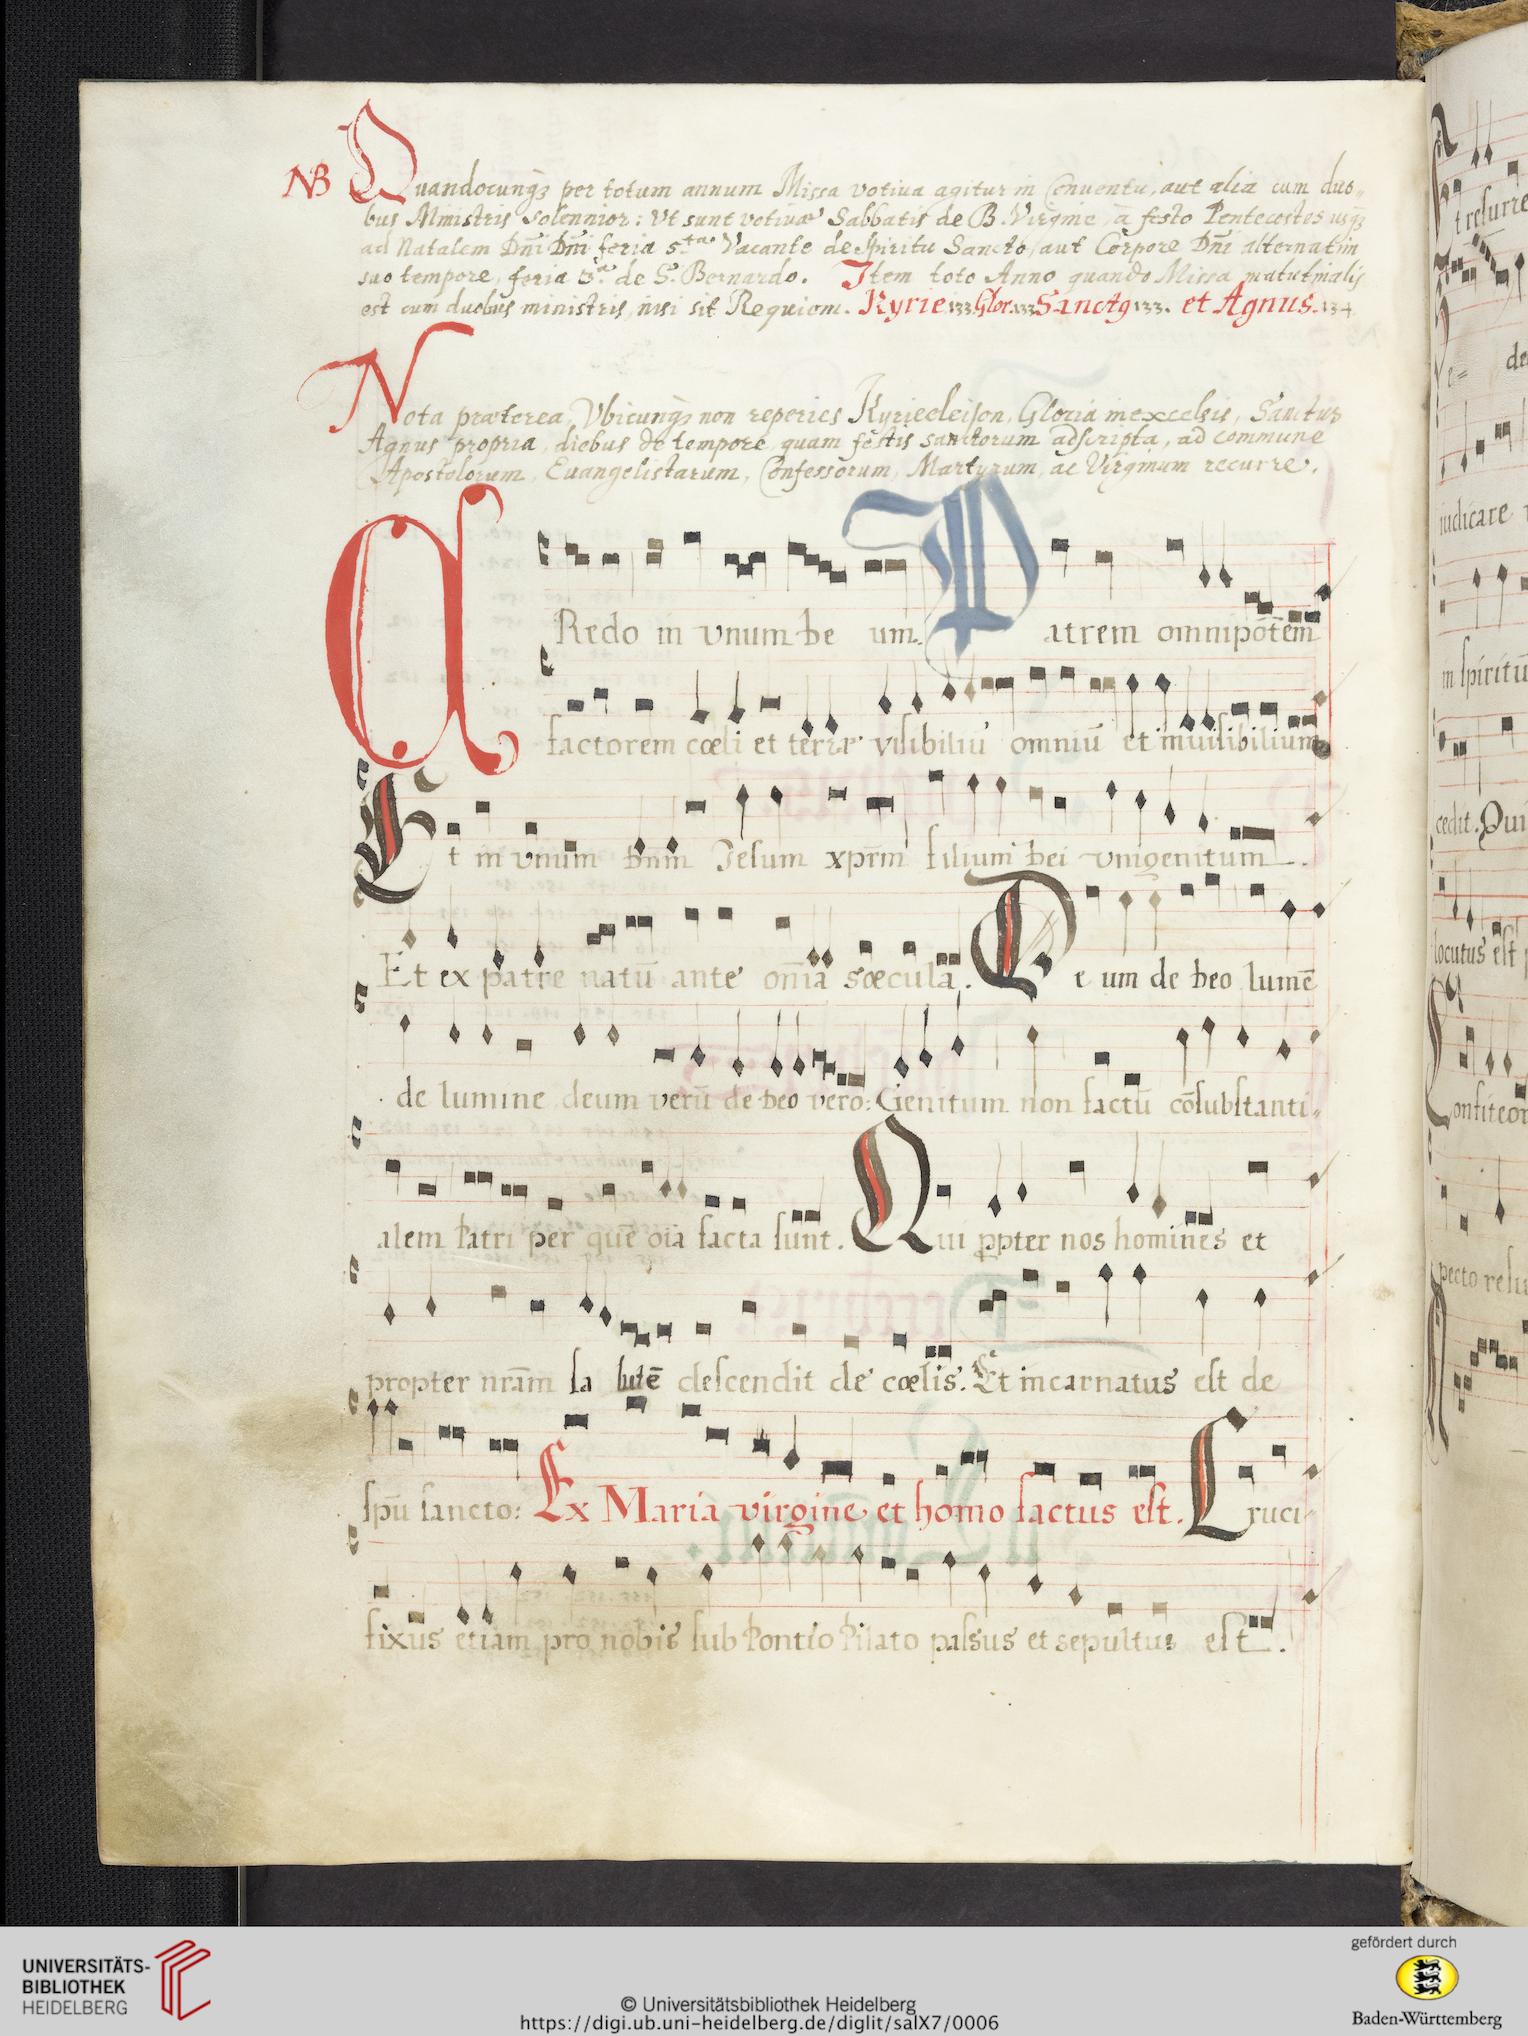 NB Quandocunq₃ per totum annum Missa votiua agitur in Conuentu, aut alia cum duo-
bus Ministris solennior: Vt sunt votiuæ Sabbatis de B. Virgine, à festo Pentecostes usq₃
ad Natalem Dn̄i Dn̄i feria 5.ta Vacante de Spiritu Sancto, aut Corpore Dn̄i alternatim
suo tempore, feria 3.a de S. Bernardo. Item toto Anno quando Missa matutinalis
est cum duobus ministris, nisi sit Requiem. Kyrie 133. Glor. 133 Sanctꝰ 133. et Agnus. 134
Nota præterea, Vbicunq₃ non reperies Kyrieeleison, Gloria in excelsis, Sanctus
Agnus propria, diebus de tempore, quam festis sanctorum adscripta, ad commune
Apostolorum, Euangelistarum, Confessorum, Martyrum, ac Virginum recurre.
CRedo in vnum de um. Patrem omnipōtem
factorem cœli et terræ visibiliū omniū et inuisibilium
Et in vnum dnm̄ Iesum xpr̄m filium dei vnigenitum.
Et ex patre natū ante om̄ia sœcula. De um de deo lumē
de lumine deum verū de deo vero: Genitum non factū cōsubstanti-
alem Patri per quē oīa facta sunt. Qui ppter nos homines et
propter nr̄am sa lutē descendit de cœlis. Et incarnatus est de
spū sancto: Ex Maria virgine et homo factus est. Cruci-
fixus etiam pro nobis sub Pontio Pilato passus et sepultus est.
t resurre
de
iudicare
in spiritū
cedit. Qui
locutus est
Confiteor
pecto resu
UNIVERSITÄTS-
BIBLIOTHEK
HEIDELBERG
© Universitätsbibliothek Heidelberg
https://digi.ub.uni-heidelberg.de/diglit/salX7/0006
gefördert durch
Baden-Württemberg